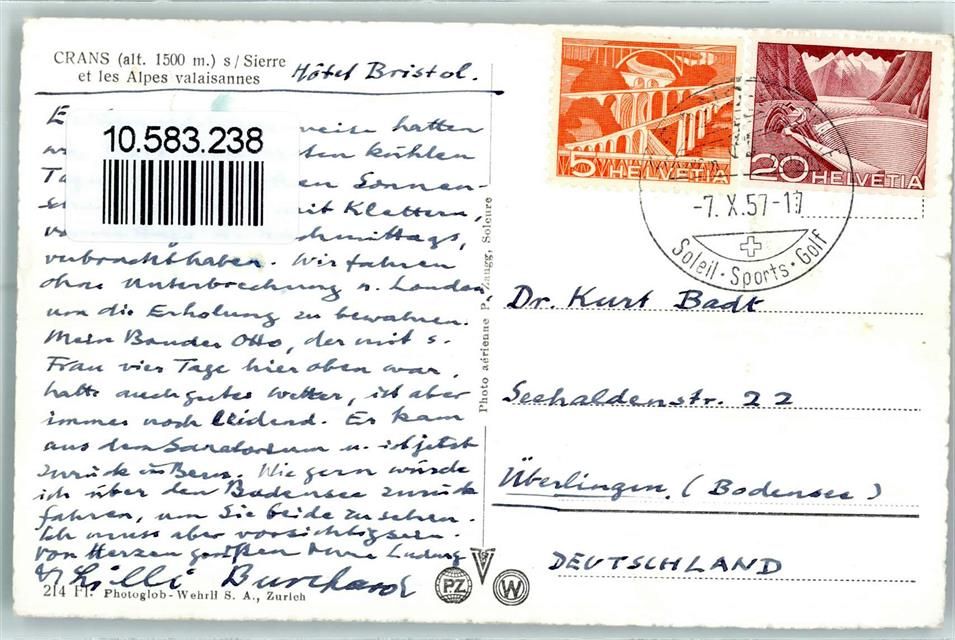 CRANS (alt. 1500 m.) s/Sierre
et les Alpes valaisannes
Hôtel Bristol.
10.583.238
weise hatten
kühlen
Sonnen-
mit Klettern,
verbracht haben. Wir fahren
ohne Unterbrechung n. London
um die Erholung zu bewahren.
Mein Bruder Otto, der mit s.
Frau vier Tage hier oben war,
hatte auch gutes Wetter, ist aber
immer noch leidend. Er kam
aus dem Sanatorium u. ist jetzt
zurück in Bern. Wie gern würde
ich über den Bodensee zurück
fahren, um Sie beide zu sehen.
Ich muss aber vorsichtig sein.
Von Herzen grüßen Ludwig
Lilli Burchard
214 Fl. Photoglob-Wehrli S. A., Zurich
Photo aérienne P. Zaugg, Soleure
PZ
W
5 HELVETIA
20 HELVETIA
-7.X.57-17
Soleil · Sports · Golf
Dr. Kurt Badt
Seehaldenstr. 22
Überlingen, (Bodensee)
DEUTSCHLAND